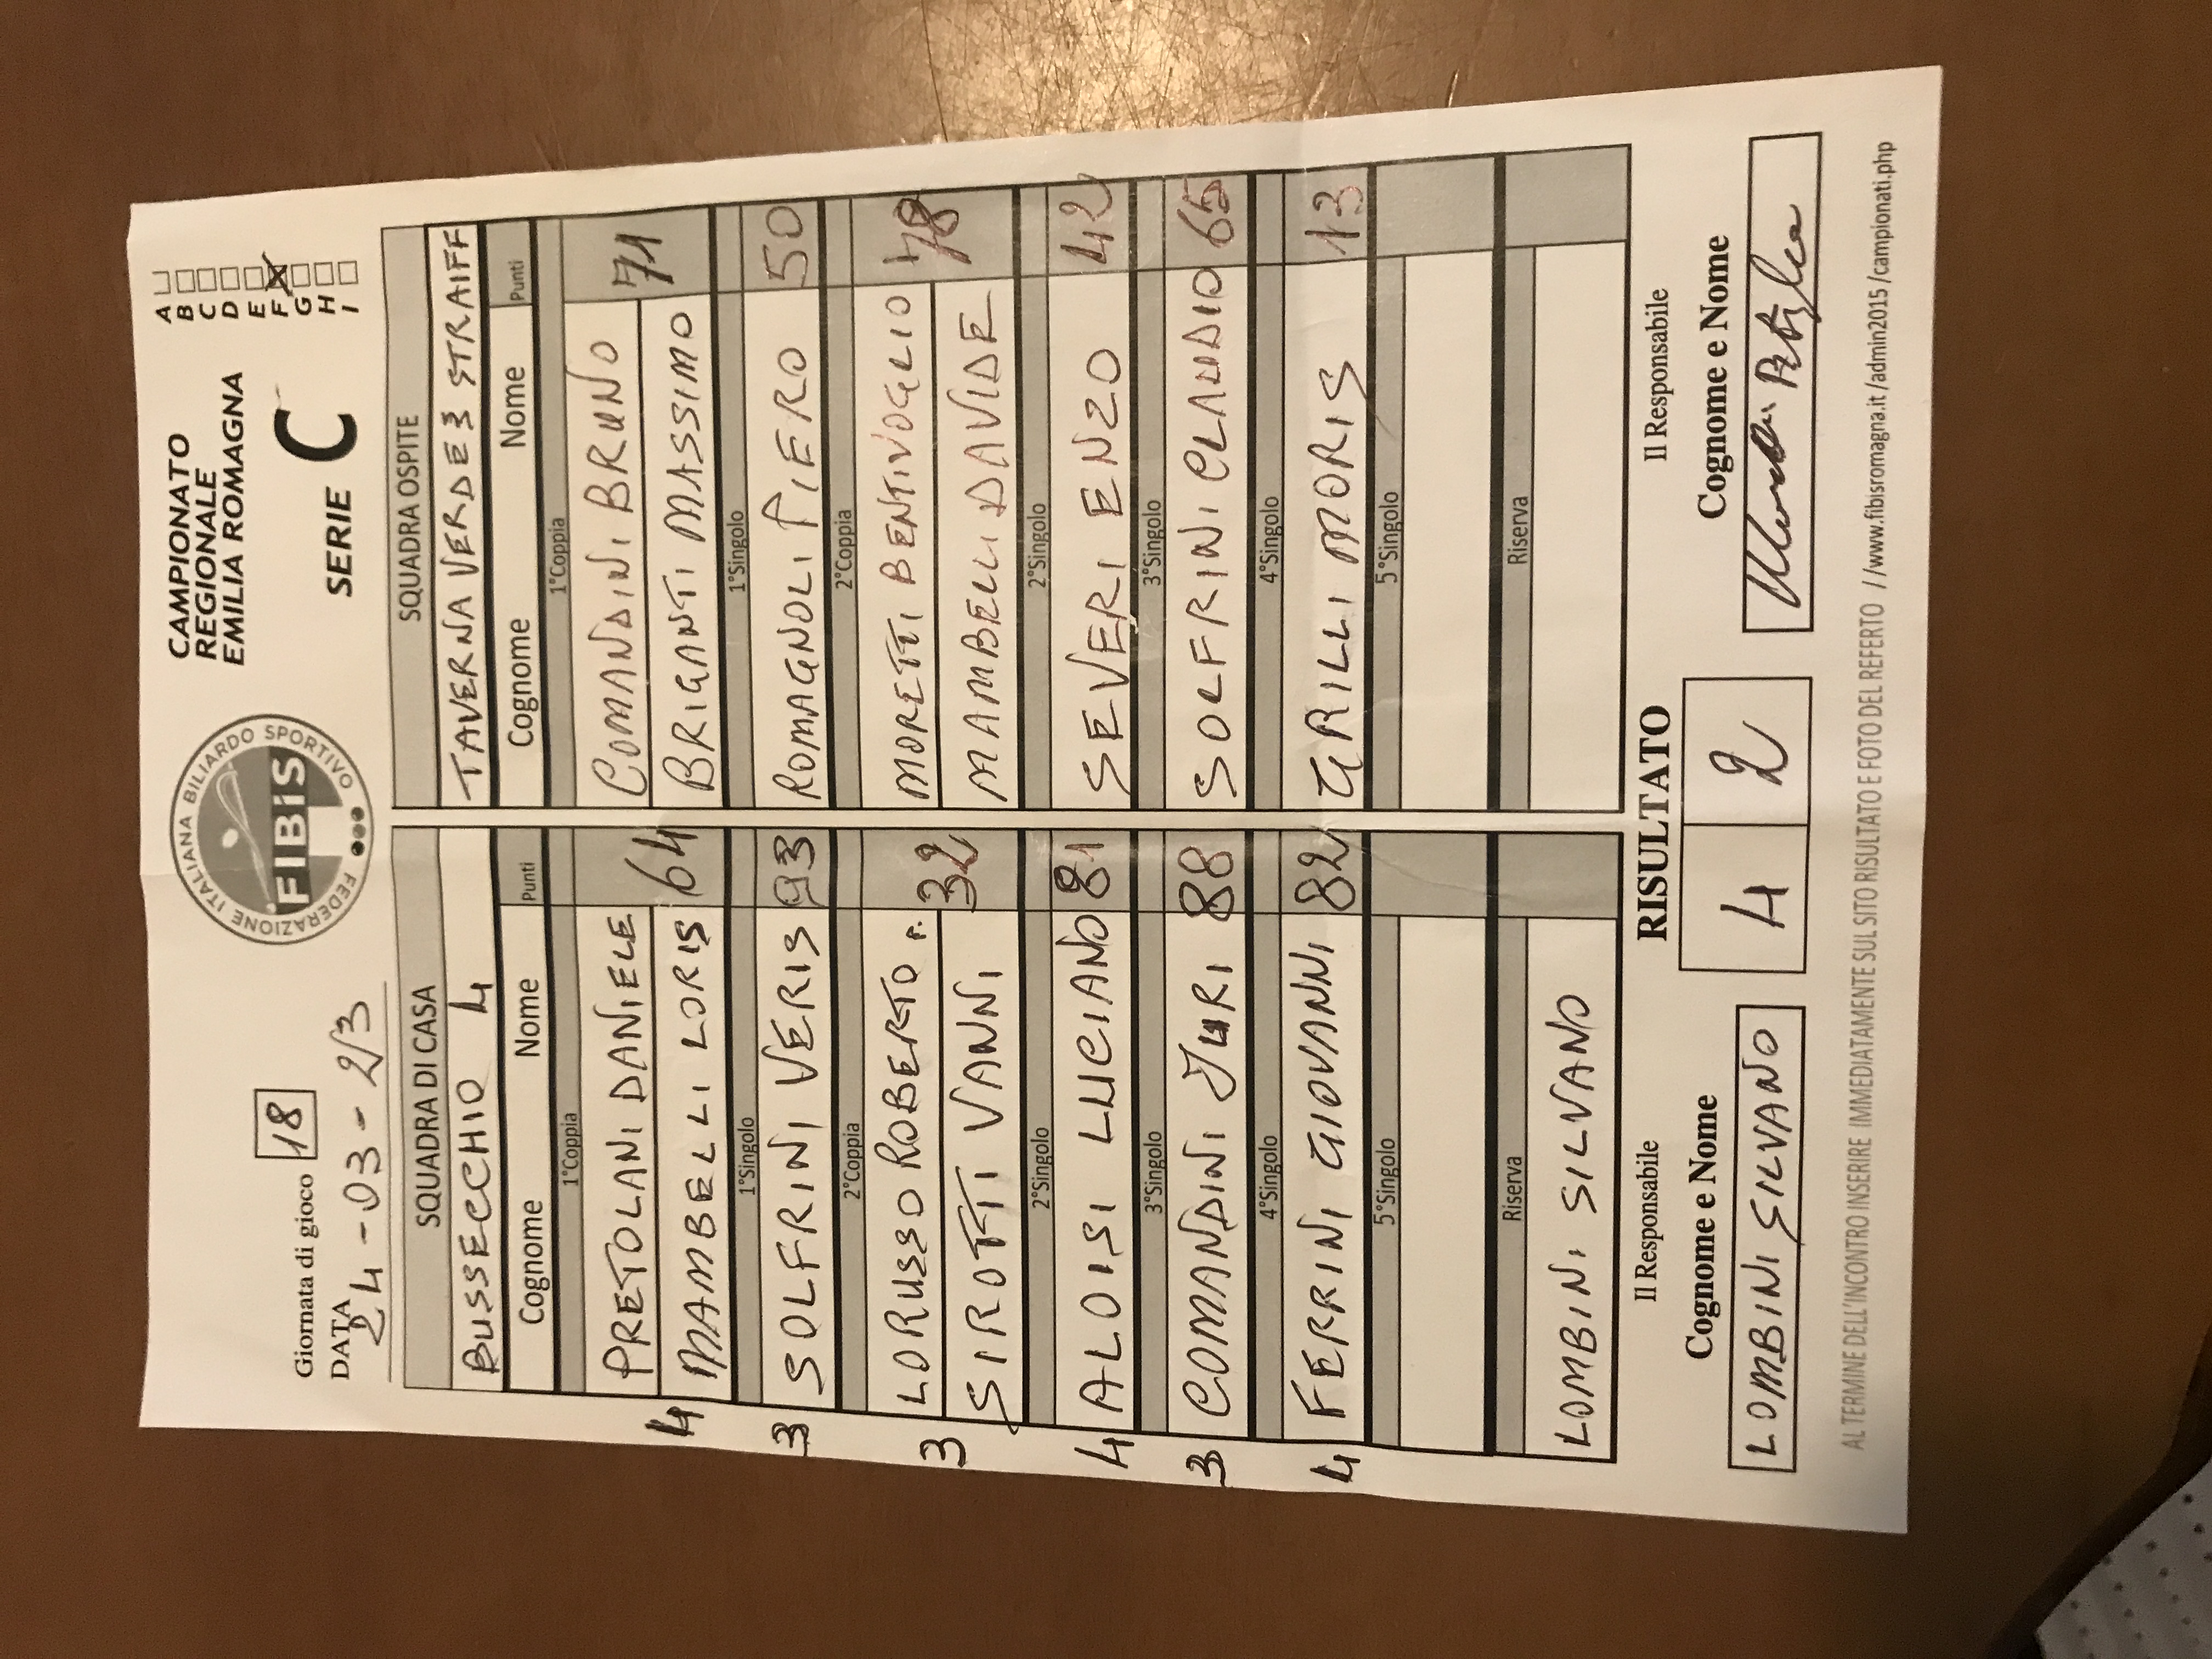 Giornata di gioco 18
DATA
24-03-2/3
FEDERAZIONE ITALIANA BILIARDO SPORTIVO
FIBiS
CAMPIONATO
REGIONALE
EMILIA ROMAGNA
SERIE C
A
B
C
D
E
F
G
H
I
SQUADRA DI CASA
BUSSECCHIO 4
Cognome Nome Punti
1°Coppia
PRETOLANI DANIELE
4 MAMBELLI LORIS 64
1°Singolo
3 SOLFRINI VERIS 93
2°Coppia
LORUSSO ROBERTO r.
3 SIROTTI VANNI 32
2°Singolo
4 ALOISI LUCIANO 81
3°Singolo
3 COMANDINI JURI 88
4°Singolo
4 FERRINI GIOVANNI 82
5°Singolo
Riserva
LOMBINI SILVANO
SQUADRA OSPITE
TAVERNA VERDE 3 STRAIFF
Cognome Nome Punti
1°Coppia
COMANDINI BRUNO 71
BRIGANTI MASSIMO
1°Singolo
ROMAGNOLI PIERO 50
2°Coppia
MORETTI BENTIVOGLIO 78
MAMBELLI DAVIDE
2°Singolo
SEVERI ENZO 42
3°Singolo
SOLFRINI CLAUDIO 65
4°Singolo
GRILLI MORIS 13
5°Singolo
Riserva
Il Responsabile
Cognome e Nome
LOMBINI SILVANO
RISULTATO
4 2
Il Responsabile
Cognome e Nome
AL TERMINE DELL'INCONTRO INSERIRE IMMEDIATAMENTE SUL SITO RISULTATO E FOTO DEL REFERTO //www.fibisromagna.it /admin2015 /campionati.php